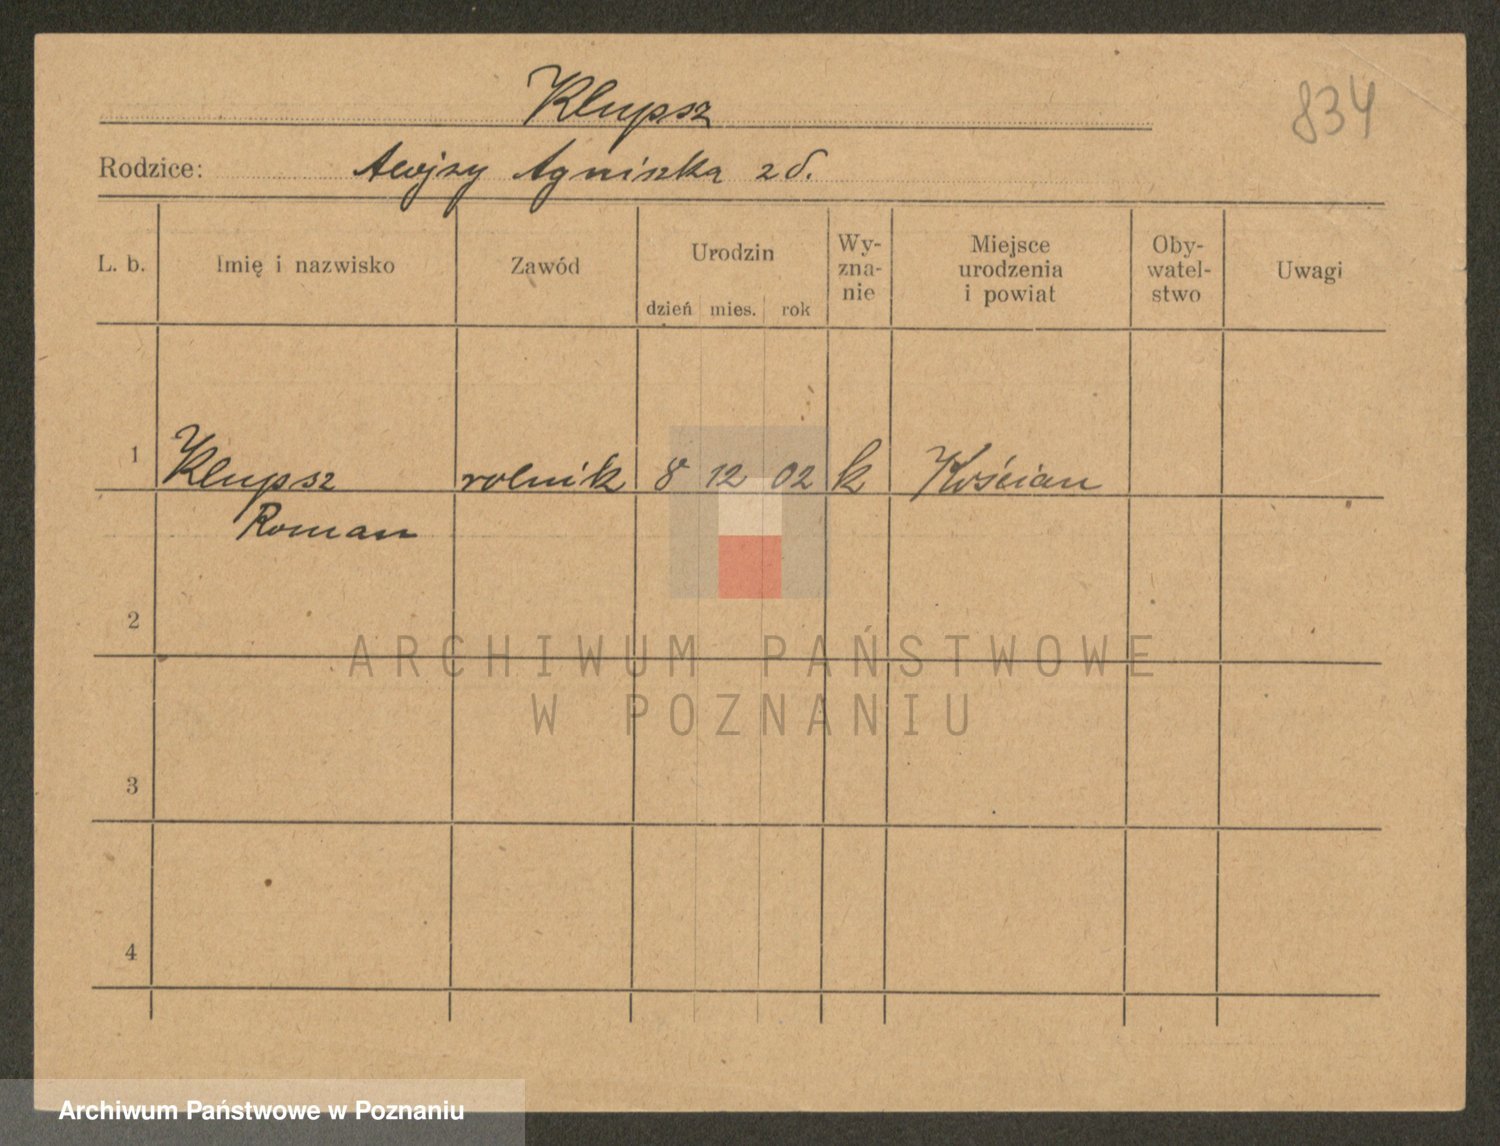 Klupsz
834
Rodzice: Alojzy Agniszka z d.
L. b. Imię i nazwisko Zawód Urodzin dzień mies. rok Wy-zna-nie Miejsce urodzenia i powiat Oby-watel-stwo Uwagi
1 Klupsz rolnik 8 12 02 k Kościan
Roman
2
ARCHIWUM PAŃSTWOWE
W POZNANIU
3
4
Archiwum Państwowe w Poznaniu